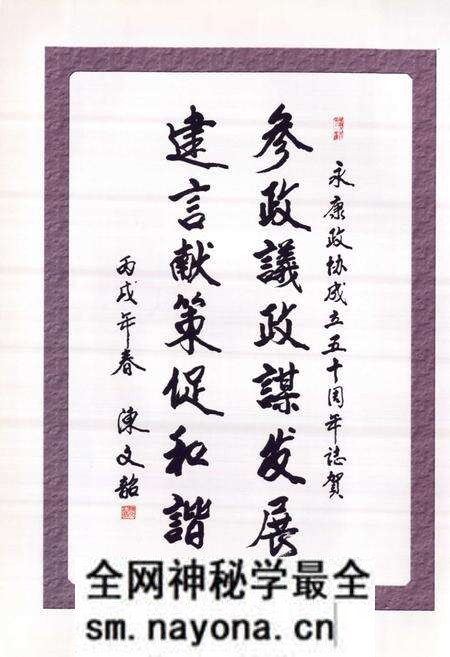 永康政协成立五十周年誌賀
参政議政謀发展
建言献策促和諧
丙戌年春 陳文韶
全网神秘学最全
sm.nayona.cn